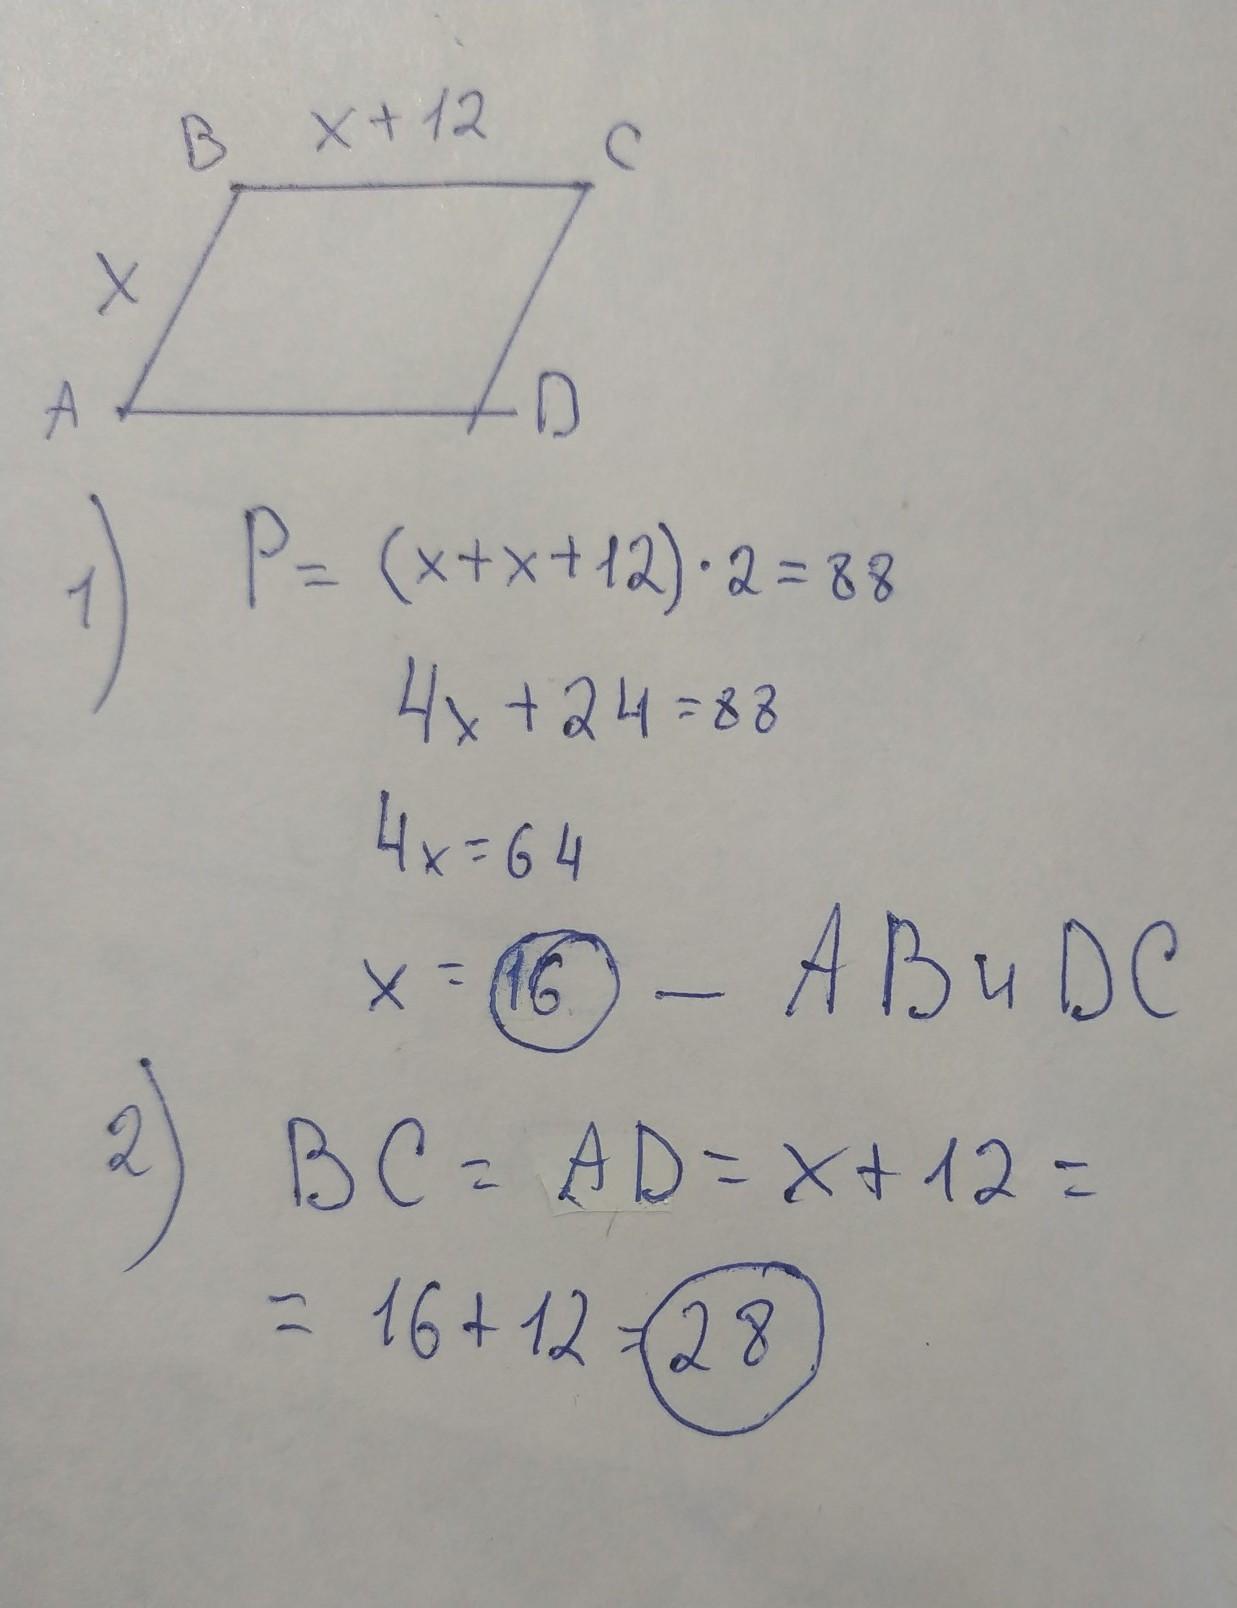 B x + 12 C
x
A D
1) P = (x+x+12)·2=88
4x + 24 = 88
4x = 64
x = 16 — AB и DC
2) BC = AD = x + 12 =
= 16 + 12 = 28